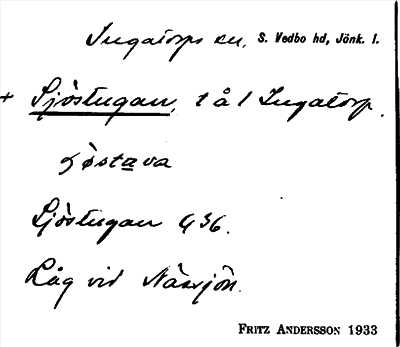 Ingatorps sn, S. Vedbo hd, Jönk. l.
+ Sjöstugan, t å 1 Ingatorp.
sjöstava
Sjöstugan G 36.
Låg vid Nässjön.
FRITZ ANDERSSON 1933